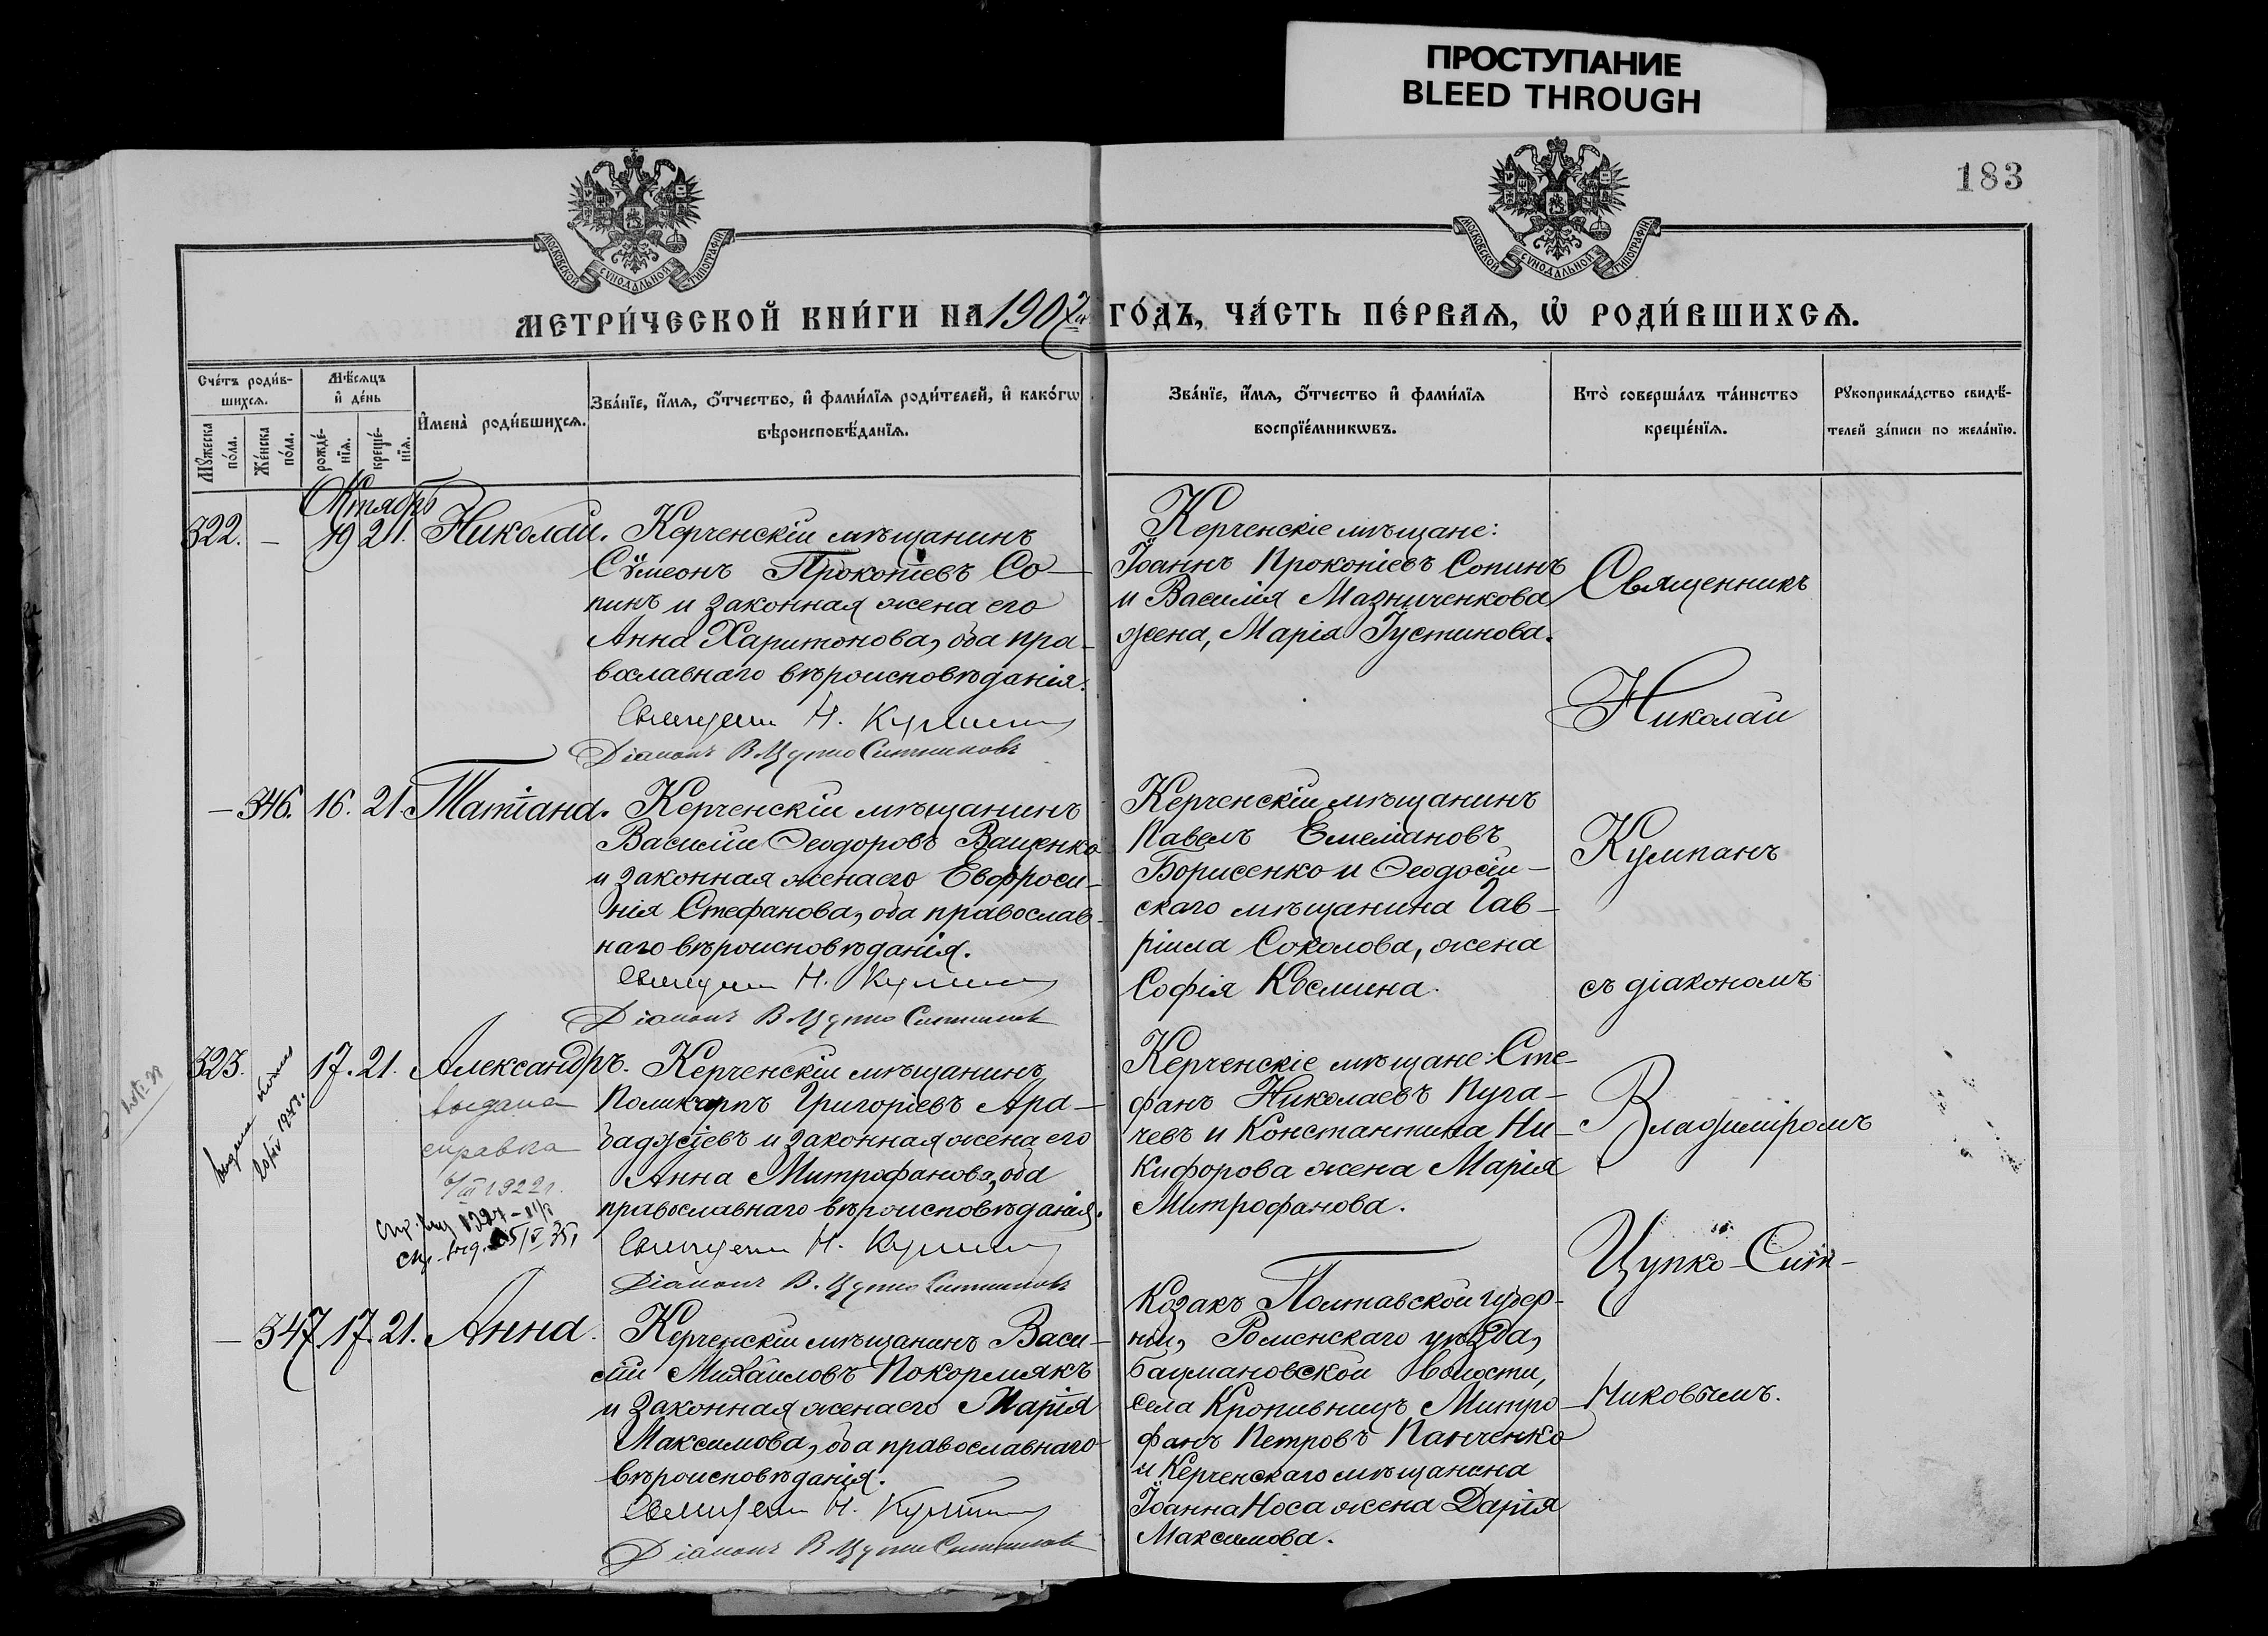 ПРОСТУПАНИЕ
BLEED THROUGH
183
МОСКОВСКОЙ СѴНОДАЛЬНОЙ ТИПОГРАФІИ
МОСКОВСКОЙ СѴНОДАЛЬНОЙ ТИПОГРАФІИ
МЕТРИ́ЧЕСКОЙ КНИ́ГИ НА 1907й ГО́ДЪ, ЧА́СТЬ ПЕ́РВАѦ, Ѡ҆ РОДИ́ВШИХСѦ.
Сче́тъ роди́в-
шихсѧ.
Мꙋжеска
по́ла.
Же́нска
по́ла.
Мѣ́сѧцъ
и҆ де́нь
рожде́-
нїѧ.
креще́-
нїѧ.
И҆мена̀ роди́вшихсѧ.
Зва́нїе, и҆́мѧ, ѻ҆́тчество, и҆ фами́лїѧ роди́телей, и҆ како́гѡ
вѣроисповѣ́данїѧ.
Зва́нїе, и҆́мѧ, ѻ҆́тчество и҆ фами́лїѧ
воспрїе́мникѡвъ.
Кто̀ соверша́лъ та́инство
креще́нїѧ.
Рꙋкоприкла́дство свидѣ́-
телей за́писи по жела́нїю.
Октябрь
322. – 19 21. Николай. Керченскій мѣщанинъ
Сѵмеонъ Прокопіевъ Со-
пинъ и законная жена его
Анна Харитонова, оба пра-
вославнаго вѣроисповѣданія.
Священникъ Н. Кумпанъ
Діаконъ В. Цупко Ситниковъ
Керченскіе мѣщане:
Іоаннъ Прокопіевъ Сопинъ
и Василія Мазниченкова
жена, Марія Іустинова.
Священникъ
Николай
– 346. 16. 21. Татіана. Керченскій мѣщанинъ
Василій Ѳеодоровъ Ващенко
и законная жена его Евфроси-
нія Стефанова, оба православ-
наго вѣроисповѣданія.
Священникъ Н. Кумпанъ
Діаконъ В. Цупко Ситниковъ
Керченскій мѣщанинъ
Павелъ Емеліановъ
Борисенко и Ѳеодосій-
скаго мѣщанина Гав-
ріила Соколова, жена
Софія Космина.
Кумпанъ
съ діакономъ
323. 17. 21. Александръ. Керченскій мѣщанинъ
Поликарпъ Григоріевъ Ара-
баджіевъ и законная жена его
Анна Митрофанова, оба
православнаго вѣроисповѣданія.
Священникъ Н. Кумпанъ
Діаконъ В. Цупко Ситниковъ
выдана
справка
6/III 1922 г.
Керченскіе мѣщане: Сте-
фанъ Николаевъ Пуга-
чевъ и Константина Ни-
кифорова жена Марія
Митрофанова.
Владиміромъ
Цупко-Сит-
– 347 17. 21. Анна. Керченскій мѣщанинъ Васи-
лій Михайловъ Покормякъ
и законная жена его Марія
Максимова, оба православнаго
вѣроисповѣданія.
Священникъ Н. Кумпанъ
Діаконъ В. Цупко Ситниковъ
Козакъ Полтавской губер-
ніи, Роменскаго уѣзда,
волости,
села Кропивницъ Митро-
фанъ Петровъ Панченко
и Керченскаго мѣщанина
Іоанна Носа жена Дарія
Максимова.
никовымъ.